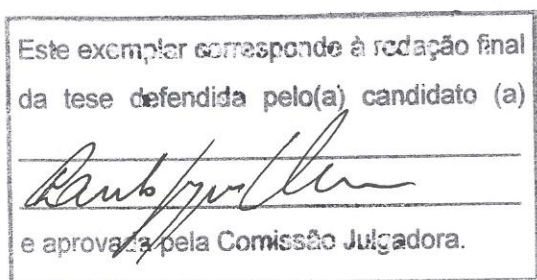 Este exemplar corresponde à redação final
da tese defendida pelo(a) candidato (a)
e aprovada pela Comissão Julgadora.